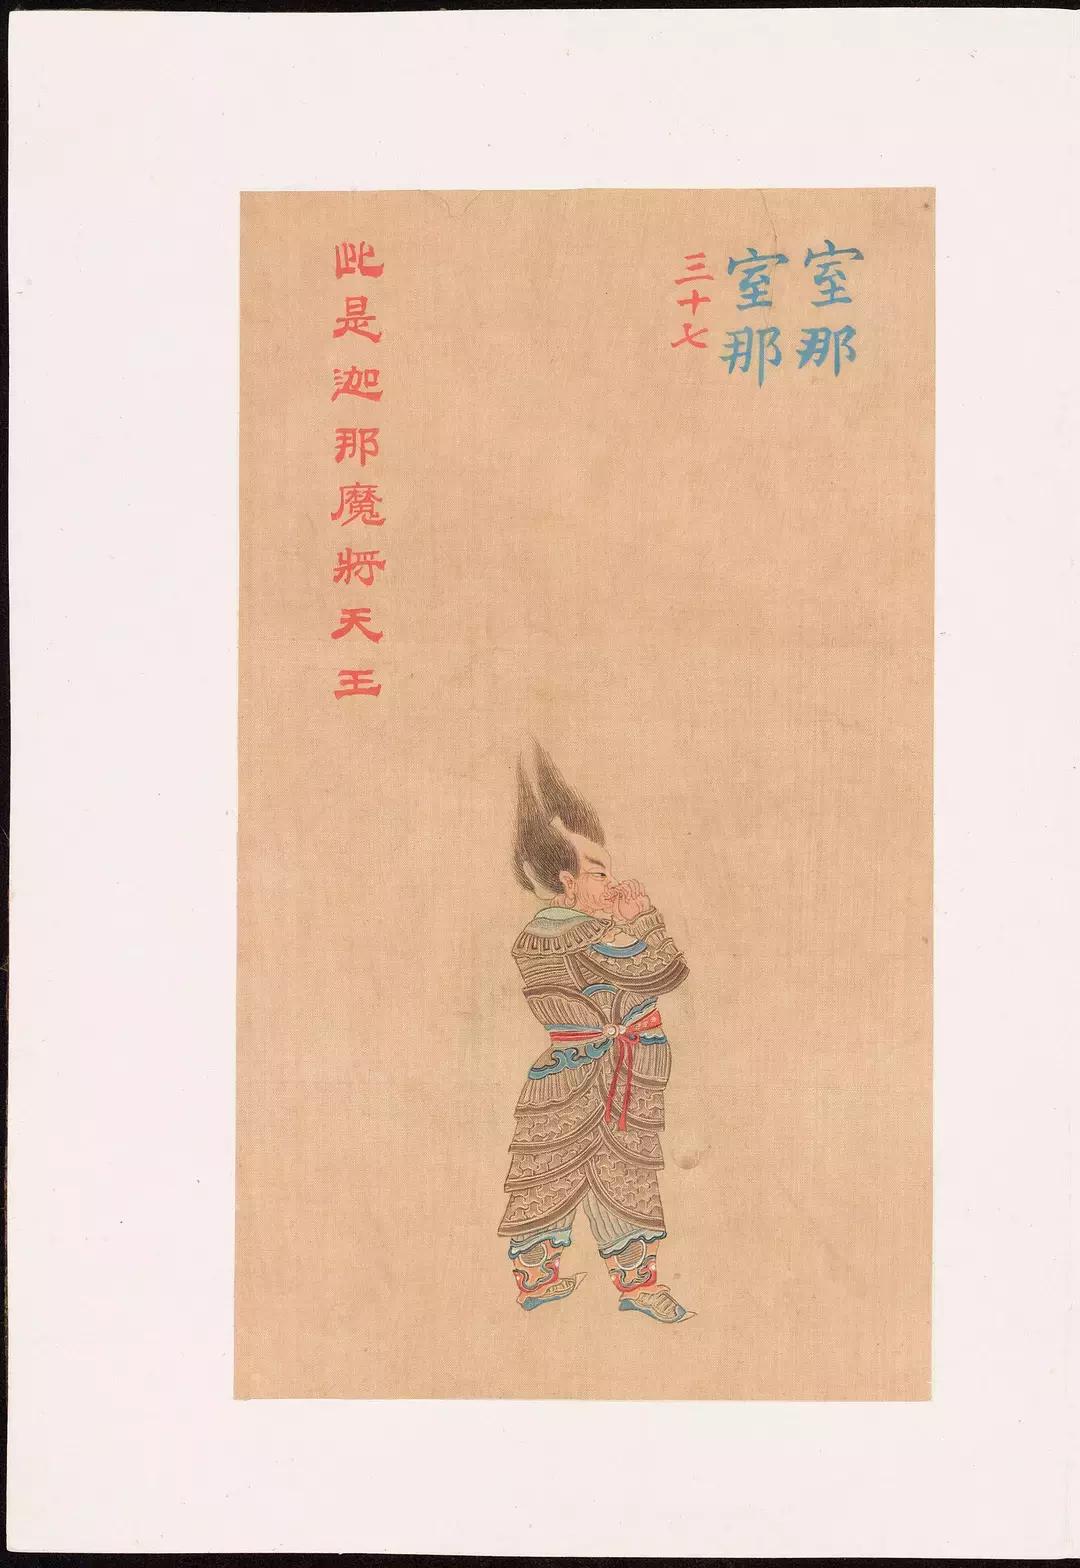 室那
室那
三十七
此是迦那魔將天王